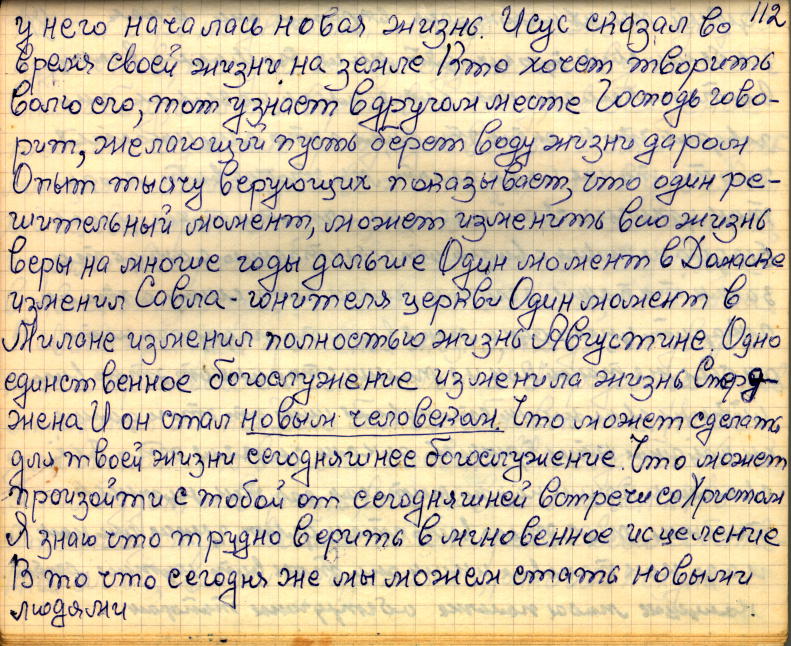 112
у него началась новая жизнь. Исус сказал во
время своей жизни на земле Кто хочет творить
волю его, тот узнает в другом месте Господь гово-
рит, желающий пусть берет воду жизни даром
Опыт тысячу верующих показывает, что один ре-
шительный момент, может изменить всю жизнь
веры на многие годы дальше Один момент в Дамаске
изменил Савла - гонителя церкви Один момент в
Милане изменил полностью жизнь Августине. Одно
единственное богослужение изменила жизнь Сперд-
жена И он стал новым человеком. Что может сделать
для твоей жизни сегодняшнее богослужение. Что может
произойти с тобой от сегодняшней встречи со Христом
Я знаю что трудно верить в мгновенное исцеление
В то что сегодня же мы можем стать новыми
людями